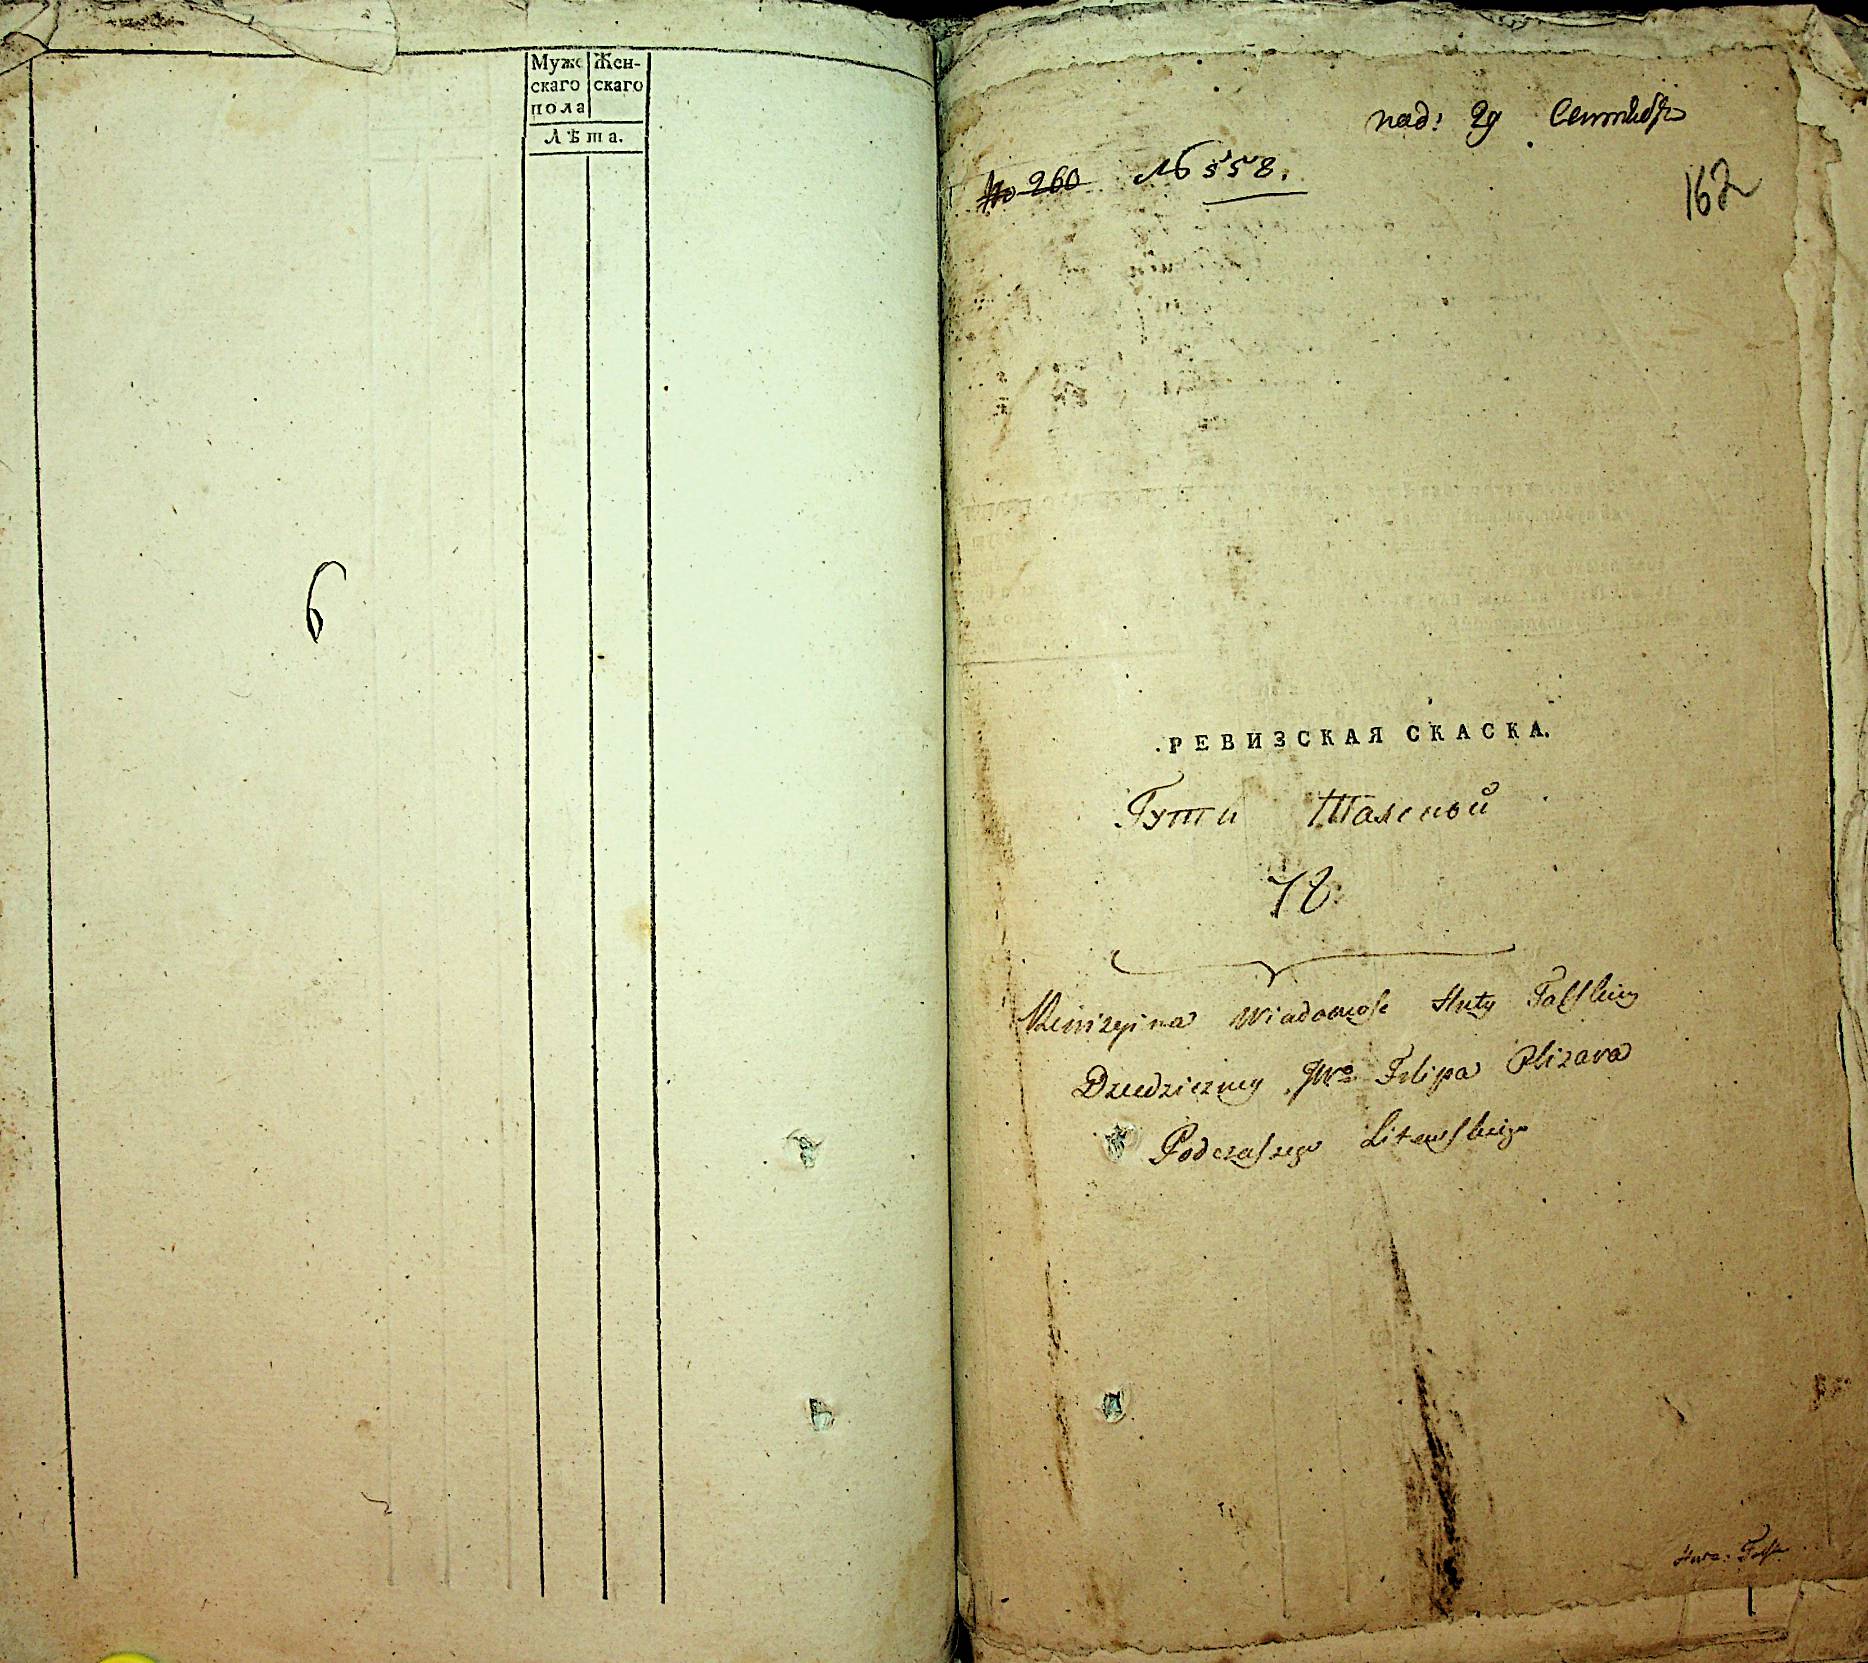 Муже Жен-
скаго скаго
пола
Лѣта.
6
под: 29 Сентября
No 260 № 558.
162
РЕВИЗСКАЯ СКАСКА.
Гути Талской
78.
Rewizyina Wiadomość Huty Talskiey
Dziedziczney JWo Filipa Olizara
Podczaszego Litewskiego